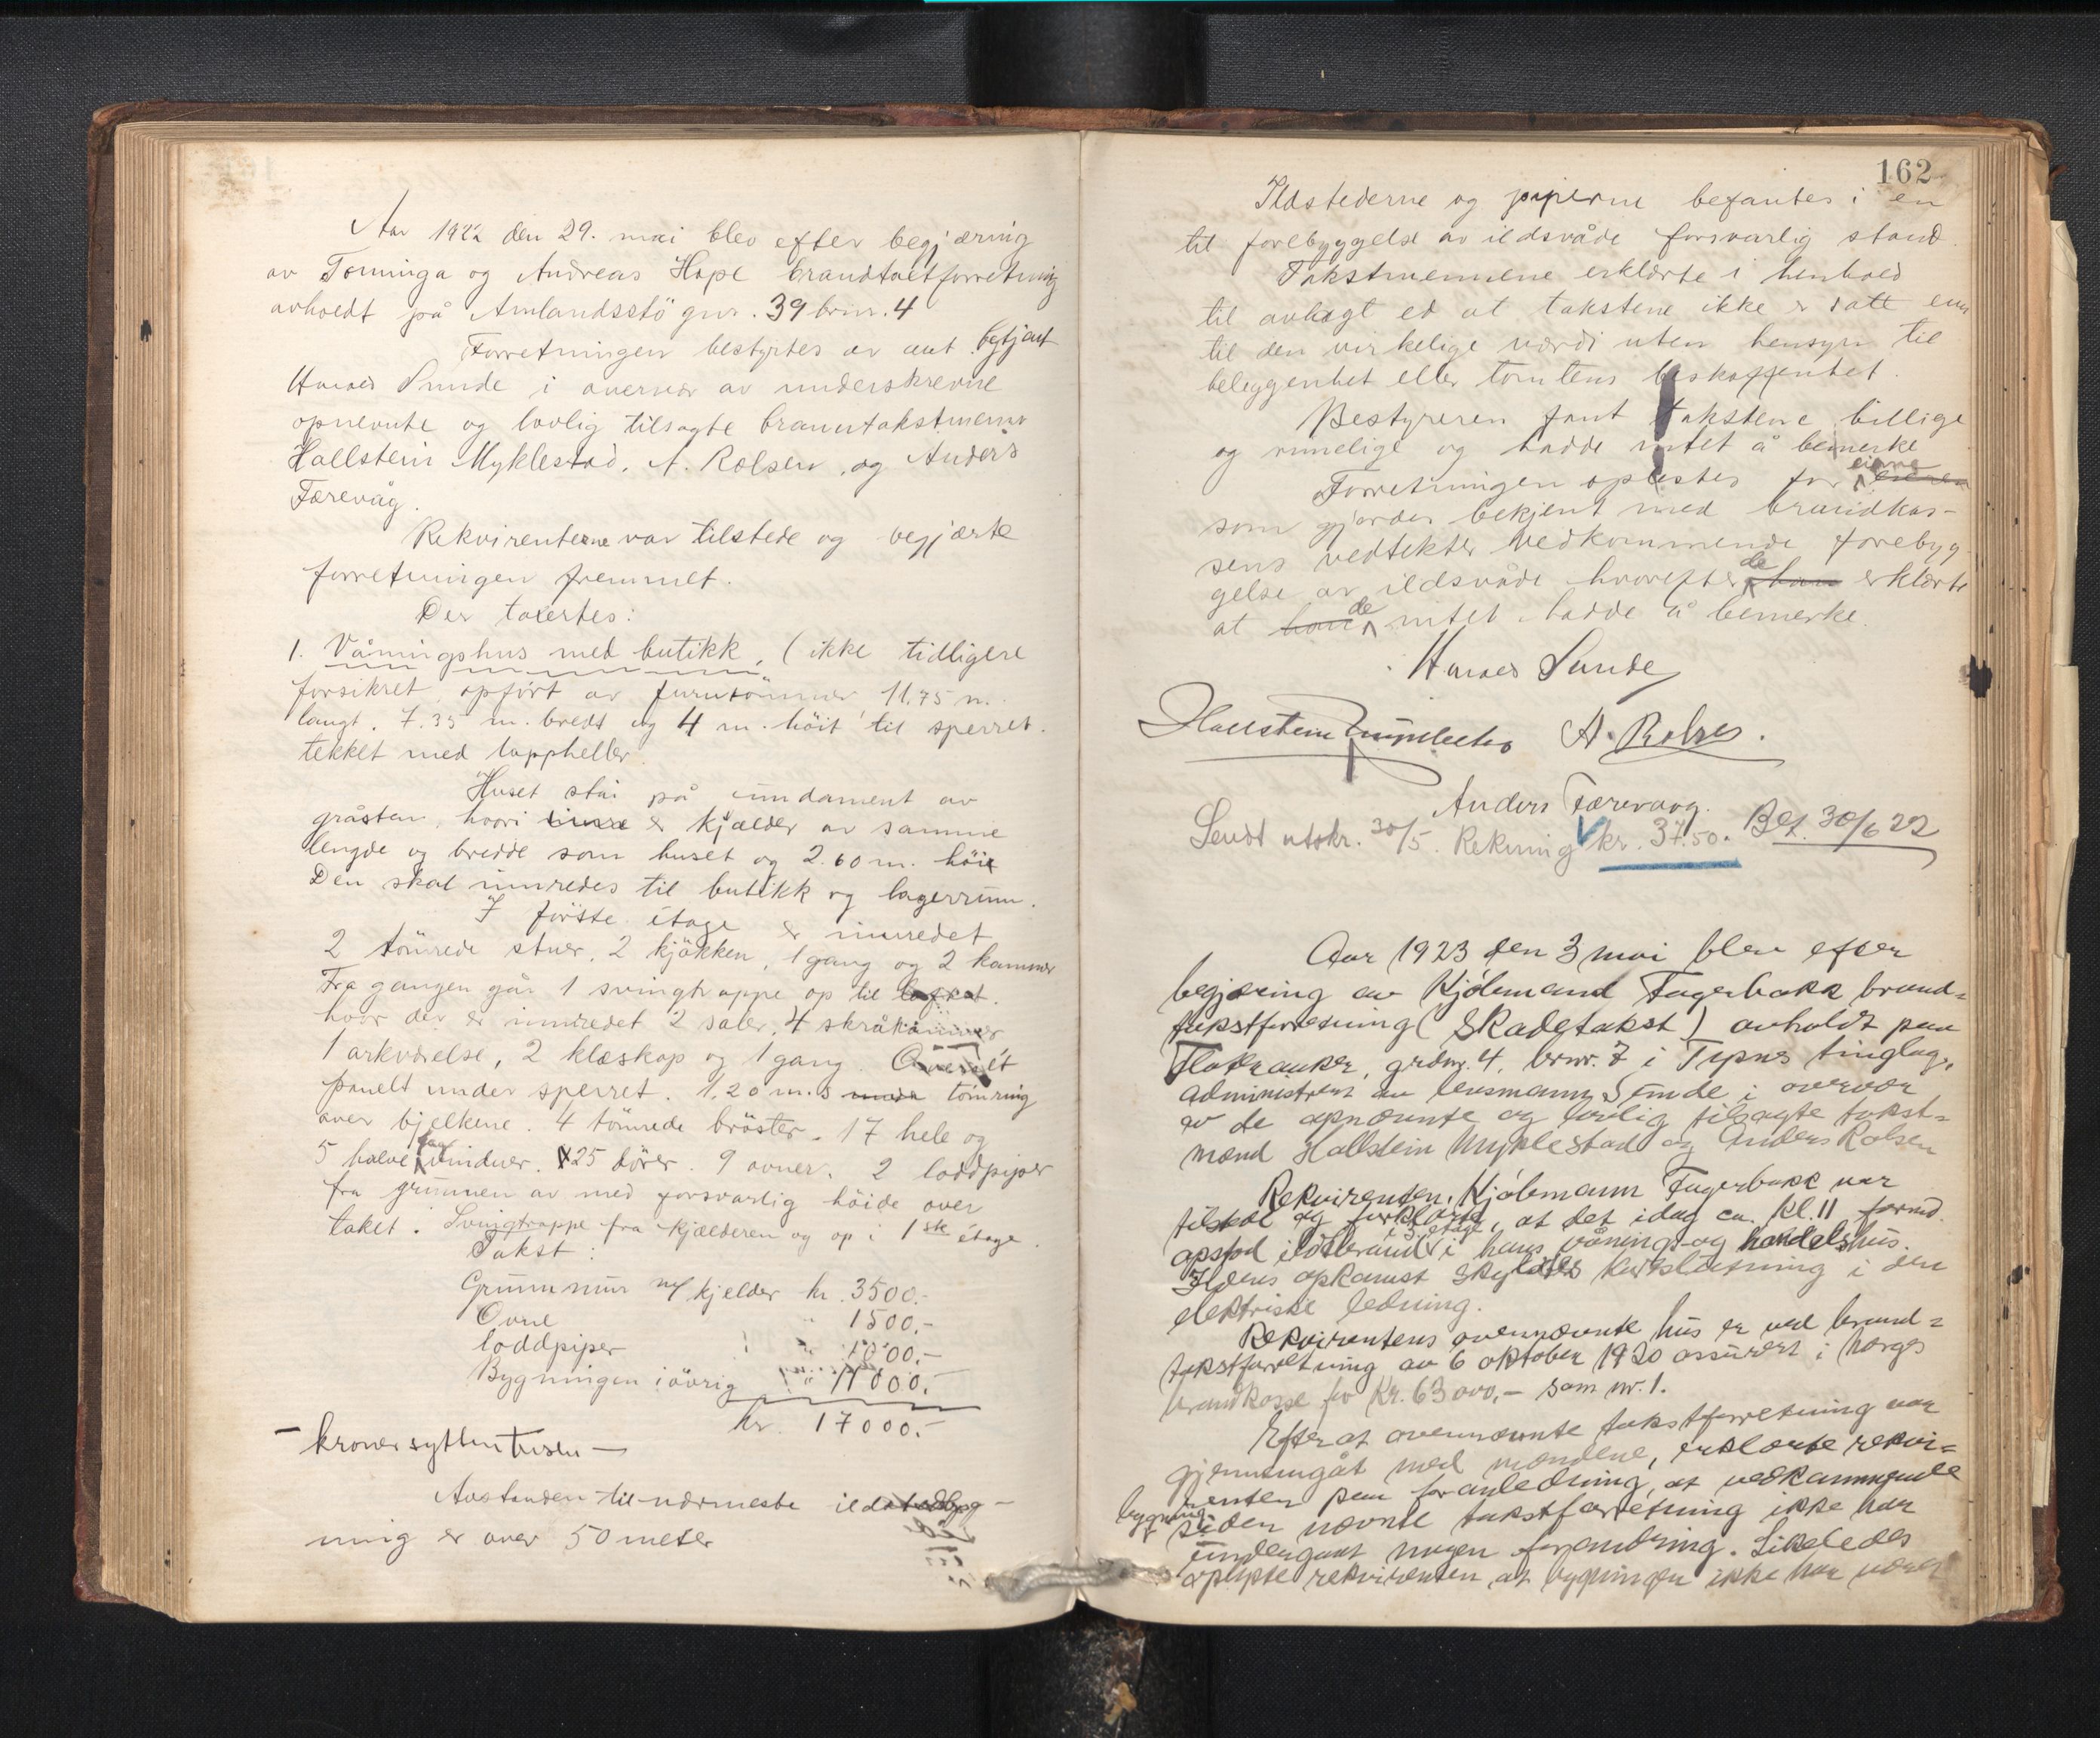 Aar 1922 den 29. mai blev efter begjæring
av Torninga og Andreas Hope brandtakstforretning
avholdt på Amlandsstö gnr. 39 brnr. 4
Forretningen bestyrtes av aut. bgtjent
Sunde i overvær av underskrevne
opnevnte og lovlig tilsagte branntakstmenn
Hallstein Myklestad, A. Rolsen, og Anders
Færevåg.
Rekvirenterne var tilstede og begjærte
forretningen fremmet.
Der taxertes:
1. Våningshus med butikk, (ikke tidligere
forsikret, opfört av furutömmer, 11.75 m.
langt, 7.35 m. bredt og 4 m. höit til sperret.
tekket med lappheller.
Huset står på fundament av
gråsten, hvori er kjælder av samme
lengde og bredde som huset og 2.60 m. höi
Den skal innredes til butikk og lagerrum.
I förste etage er innredet
2 tömrede stuer, 2 kjökken, 1 gang og 2 kammer
Fra gangen går 1 svingtrappe op til loftet.
hvor der er innredet 2 saler, 4 skråkammer
1 arkværelse, 2 klæskap og 1 gang. Overalt
panelt under sperret. 1.20 m.s tömring
over bjelkene. 4 tömrede bröster. 17 hele og
5 halve fag vinduer. 25 dörer. 9 ovner. 2 loddpiper
fra grunnen av med forsvarlig höide over
taket. Svingtrappe fra kjælderen og op i 1ste étage.
Takst:
Grunnmur m/ kjelder kr. 3500.-
Ovne " 1500.-
loddpiper " 1000.-
Bygningen iövrig " 11000.-
kr. 17000.-
– kroner sytten tusen –
Avstanden til nærmeste ildstedbyg-
ning er over 50 meter
162
Ildstederne og piperne befantes i en
til forebyggelse av ildsvåde forsvarlig stand.
Takstmennene erklærte i henhold
til avlagt ed at takstene ikke er satt
til den virkelige værdi uten hensyn til
beliggenhet eller tomtens beskaffenhet.
Bestyreren fant takstene billige
og rimelige og hadde intet å bemerke
Forretningen oplestes for eierne
som gjordes bekjent med brandkas-
sens vedtekter vedkommende forebyg-
gelse av ildsvåde hvorefter de han erklærte
at han de intet hadde å bemerke.
Sunde
Hallstein Myklestad A. Rolsen.
Anders Færevaag.
Sendt utskr. 30/5. Rekning kr. 37.50. Bet. 30/6 22
Aar 1923 den 3 mai blev efter
begjæring av Kjöbmand Fagerbakk brand-
takstforretning (Skadetakst) avholdt paa
grdnr. 4, brnr. 7 i tinglag,
administrert av lensmann Sunde i overvær
av de opnævnte og lovlig tilsagte takst-
mænd Hallstein Myklestad og Anders Rolsen
Rekvirenten, Kjöbmann Fagerbakk var
tilstede og forklarte, at det idag ca. kl. 11 formd.
opstod ildebrand i 3 etage i hans vånings- og handelshus.
Ildens opkomst skyldes kortslutning i den
elektriske ledning.
Rekvirentens ovennævnte hus er ved brand-
takstforretning av 6 oktober 1920 assurert i Norges
brandkasse for Kr. 63000,- som nr. 1.
Efter at ovennævnte takstforretning var
gjennemgåt med mændene, erklærte rekvi-
renten paa foranledning, at vedkommende
bygning siden nævnte takstforretning ikke har
undergaat nogen forandring. Likeledes
oplyste rekvirenten, at bygningen ikke har været